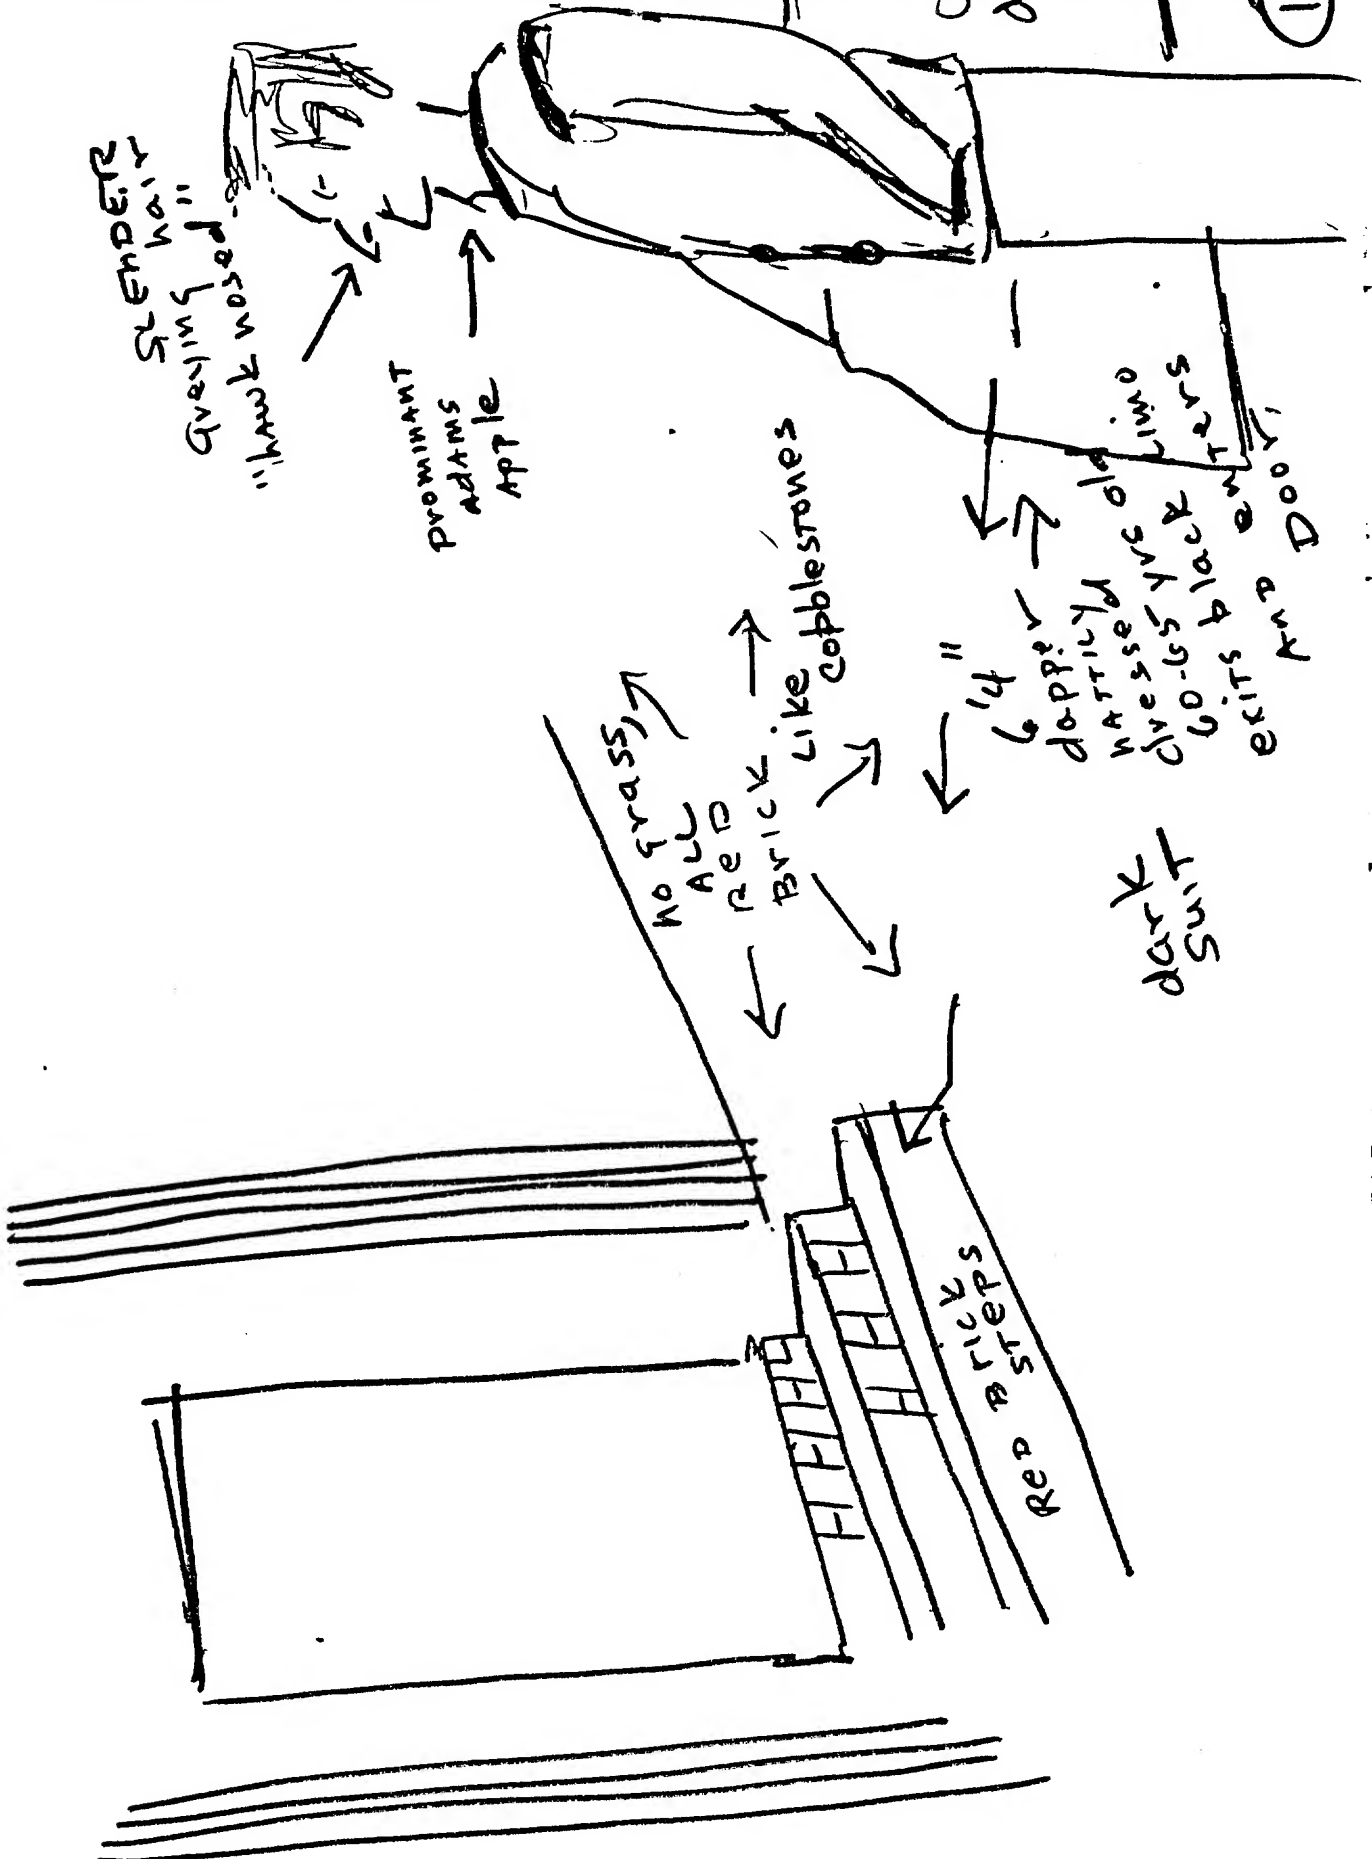 SLENDER
Graying hair
"hawk nosed"
prominant
adams
apple
No grass,
ALL
Red
Brick
Like
cobblestones
6'4"
dapper
nattily
dressed
60-65 yrs old
exits black Limo
And enters
Door,
dark
suit
Red Brick
steps
1